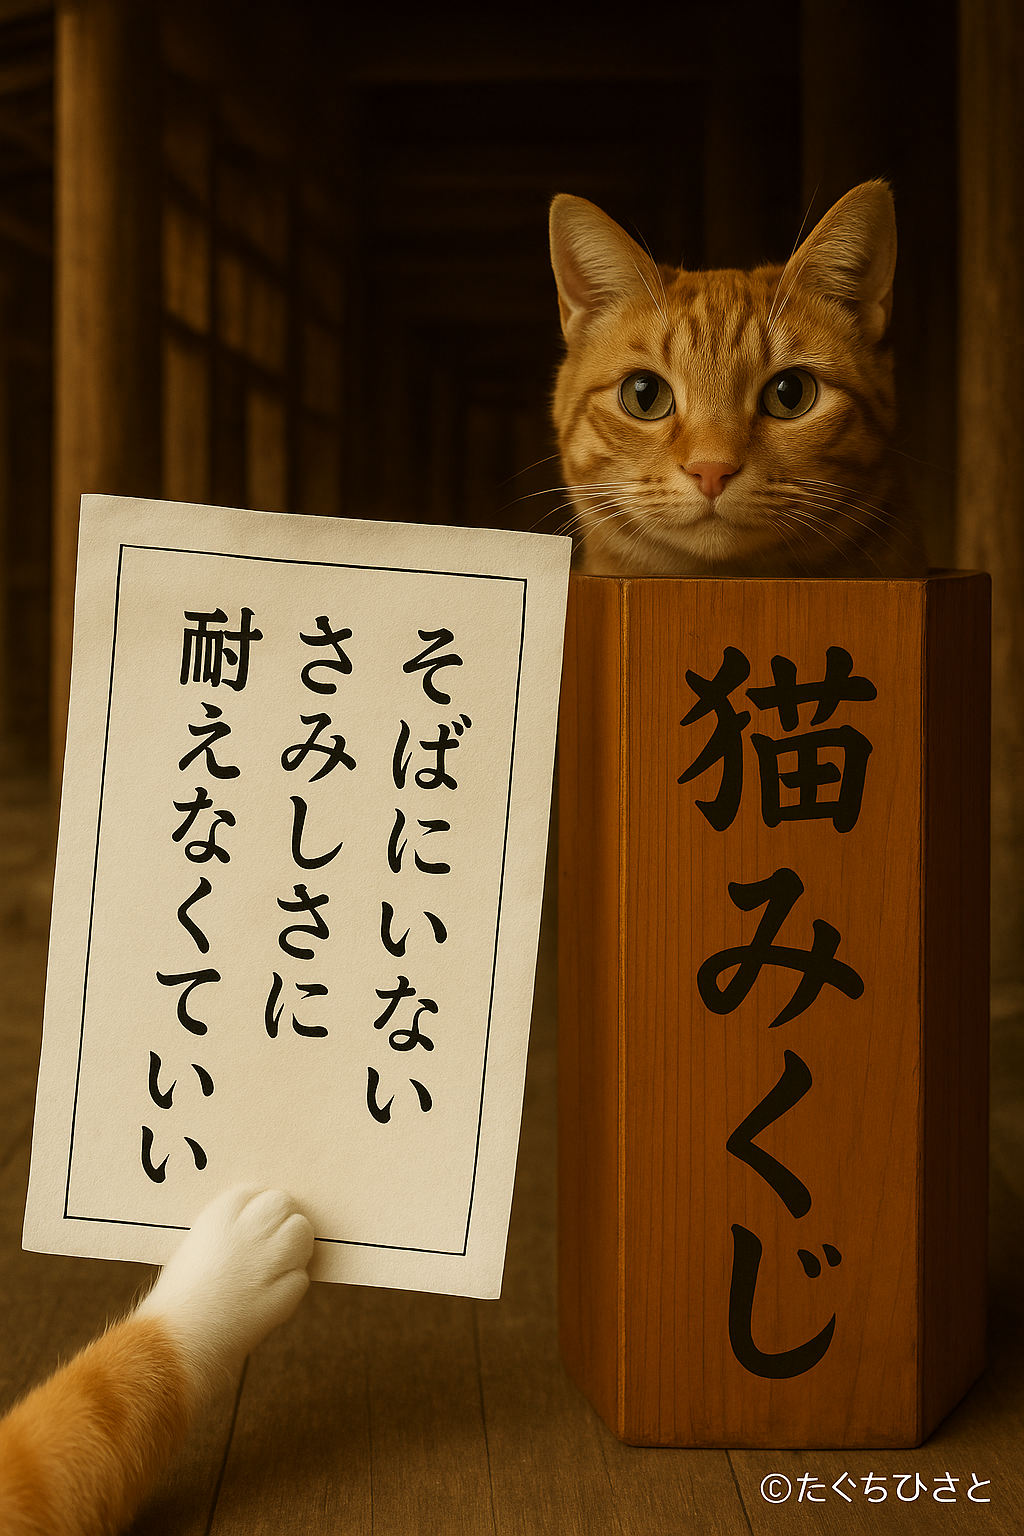 そばにいない
さみしさに
耐えなくていい
猫みくじ
©たぐちひさと